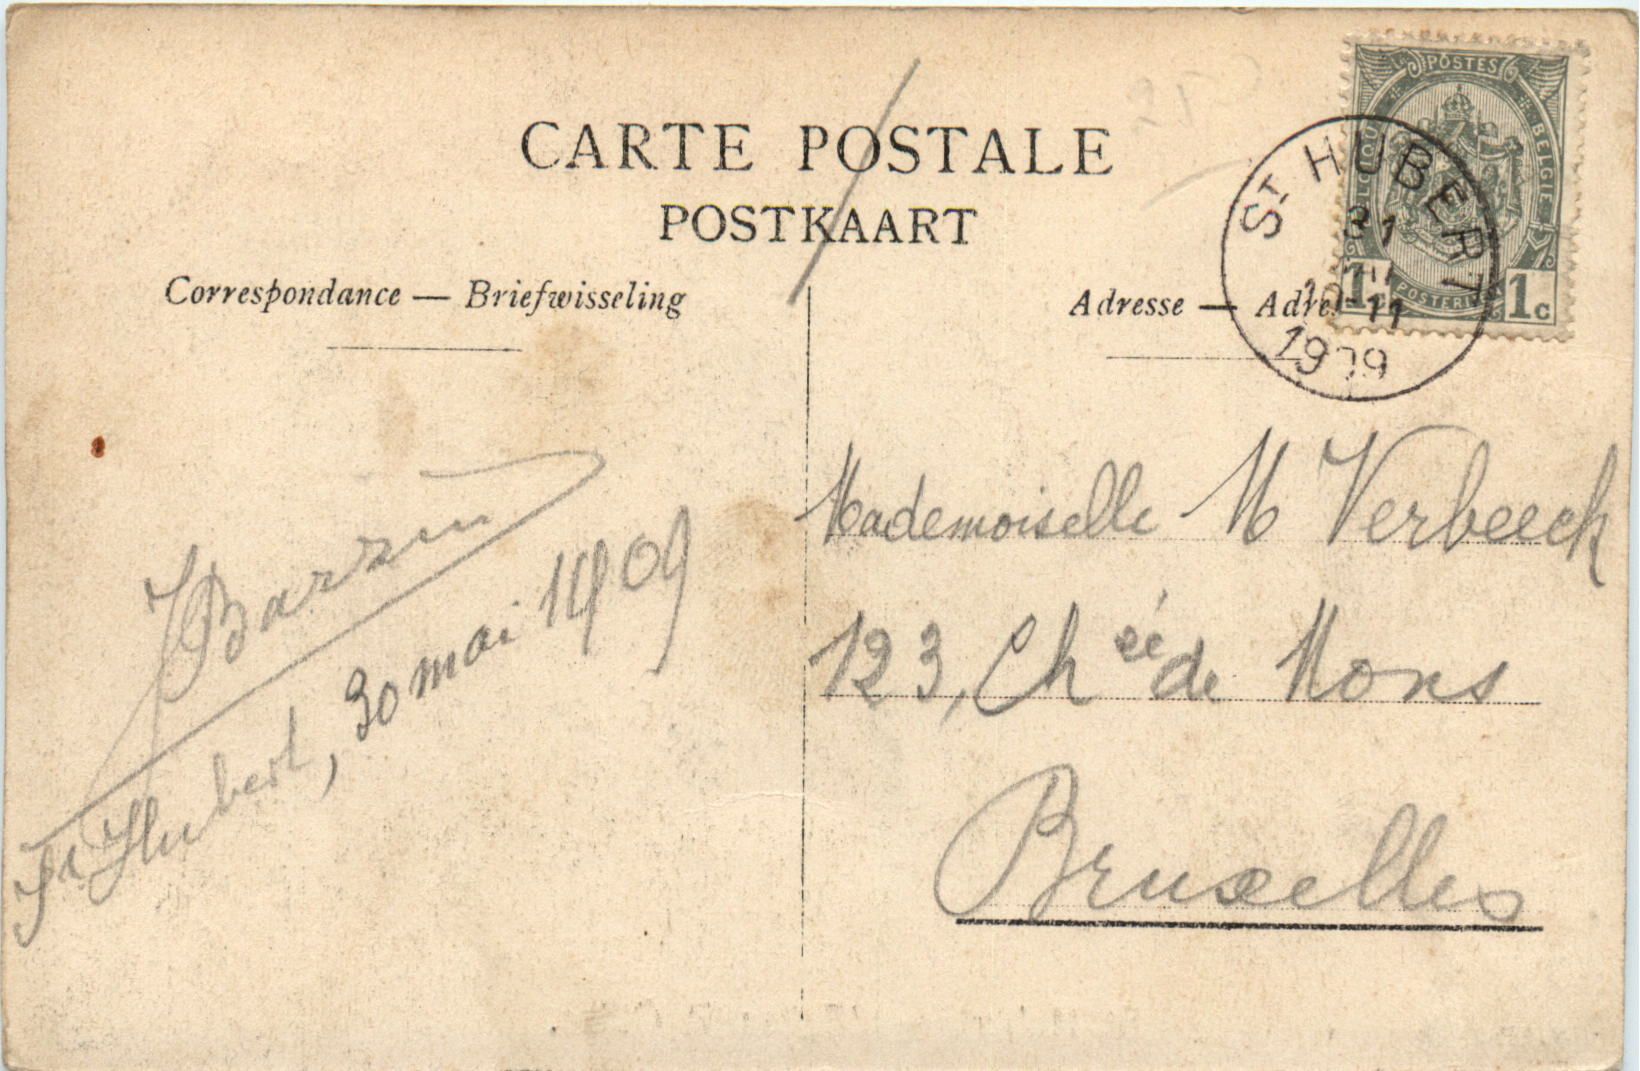 CARTE POSTALE
POSTKAART
Correspondance — Briefwisseling
Adresse — Adre
POSTES
BELGIE
1c 1c
St HUBERT
31
11
1909
Mademoiselle M Verbeeck
123, Chée de Mons
Bruxelles
St Hubert, 30 mai 1909